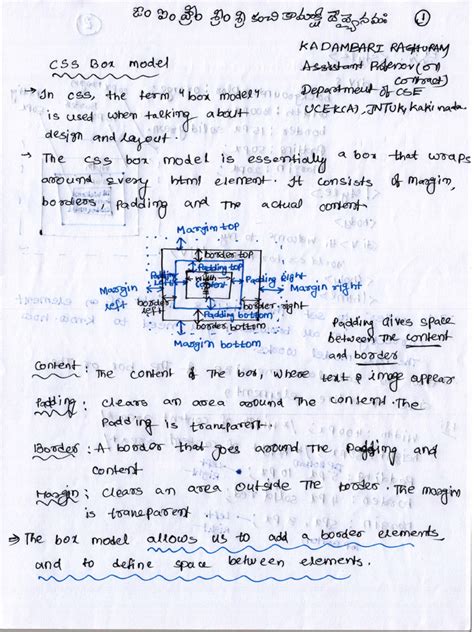 ఓం ఐం హ్రీం శ్రీం శ్రీ కంచి కామాక్షి దేవ్యైనమః
1
KADAMBARI RAGHURAM
Assistant Professor (on
contract)
Department of CSE
UCEK(A), JNTUK, Kakinada.
CSS Box model
→ In css, the term "box model"
is used when talking about
design and layout.
→ The css box model is essentially a box that wraps
around every html element. It consists of Margin,
borders, padding and the actual content
Margin top
border top
Padding top
Margin left
border left
Padding left
width
content
Padding Right
border right
Margin right
Padding bottom
border bottom
Margin bottom
Padding gives space
between the content
and border
Content : The content of the box, where text & image appear
Padding : clears an area around the content. The
Padding is transparent.
Border : A border that goes around the padding and
content
Margin : clears an area outside the border. The margin
is transparent
⇒ The box model allows us to add a border elements,
and to define space between elements.